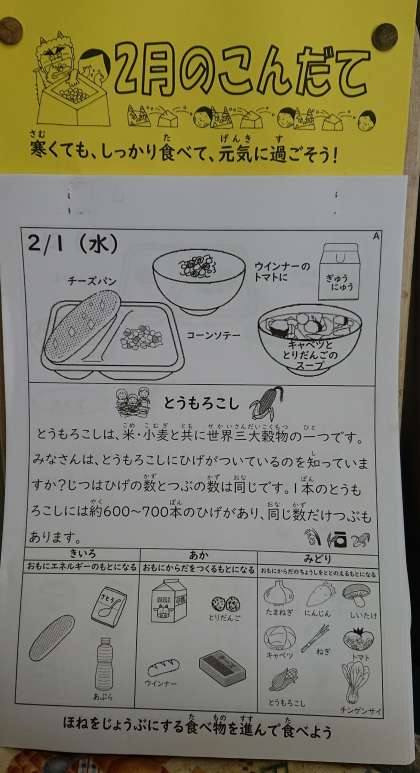 2月のこんだて
寒くても、しっかり食べて、元気に過ごそう!
さむ た げんき す
A
2/1(水)
チーズパン
ウインナーの
トマトに
ぎゅう
にゅう
コーンソテー
キャベツと
とりだんごの
スープ
とうもろこし
こめ こむぎ とも せかいさんだいこくもつ ひと
とうもろこしは、米・小麦と共に世界三大穀物の一つです。
し
みなさんは、とうもろこしにひげがついているのを知っていま
かず かず おな ぽん
すか?じつはひげの数とつぶの数は同じです。1本のとうも
やく ぽん おな かず
ろこしには約600~700本のひげがあり、同じ数だけつぶも
あります。
きいろ
おもにエネルギーのもとになる
あか
おもにからだをつくるもとになる
みどり
おもにからだのちょうしをととのえるもとになる
さとう
あぶら
とりだんご
ウインナー
たまねぎ
にんじん
しいたけ
キャベツ
ねぎ
トマト
とうもろこし
チンゲンサイ
た もの すす た
ほねをじょうぶにする食べ物を進んで食べよう